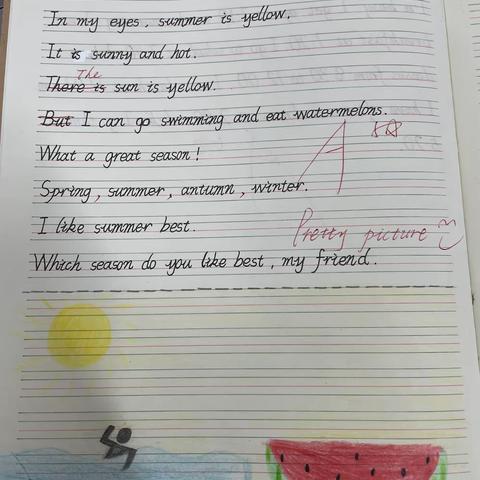 In my eyes, summer is yellow.
It is sunny and hot.
The
There is sun is yellow.
But I can go swimming and eat watermelons.
What a great season!
A
Spring, summer, antumn, winter.
I like summer best.
Pretty picture
Which season do you like best, my friend.